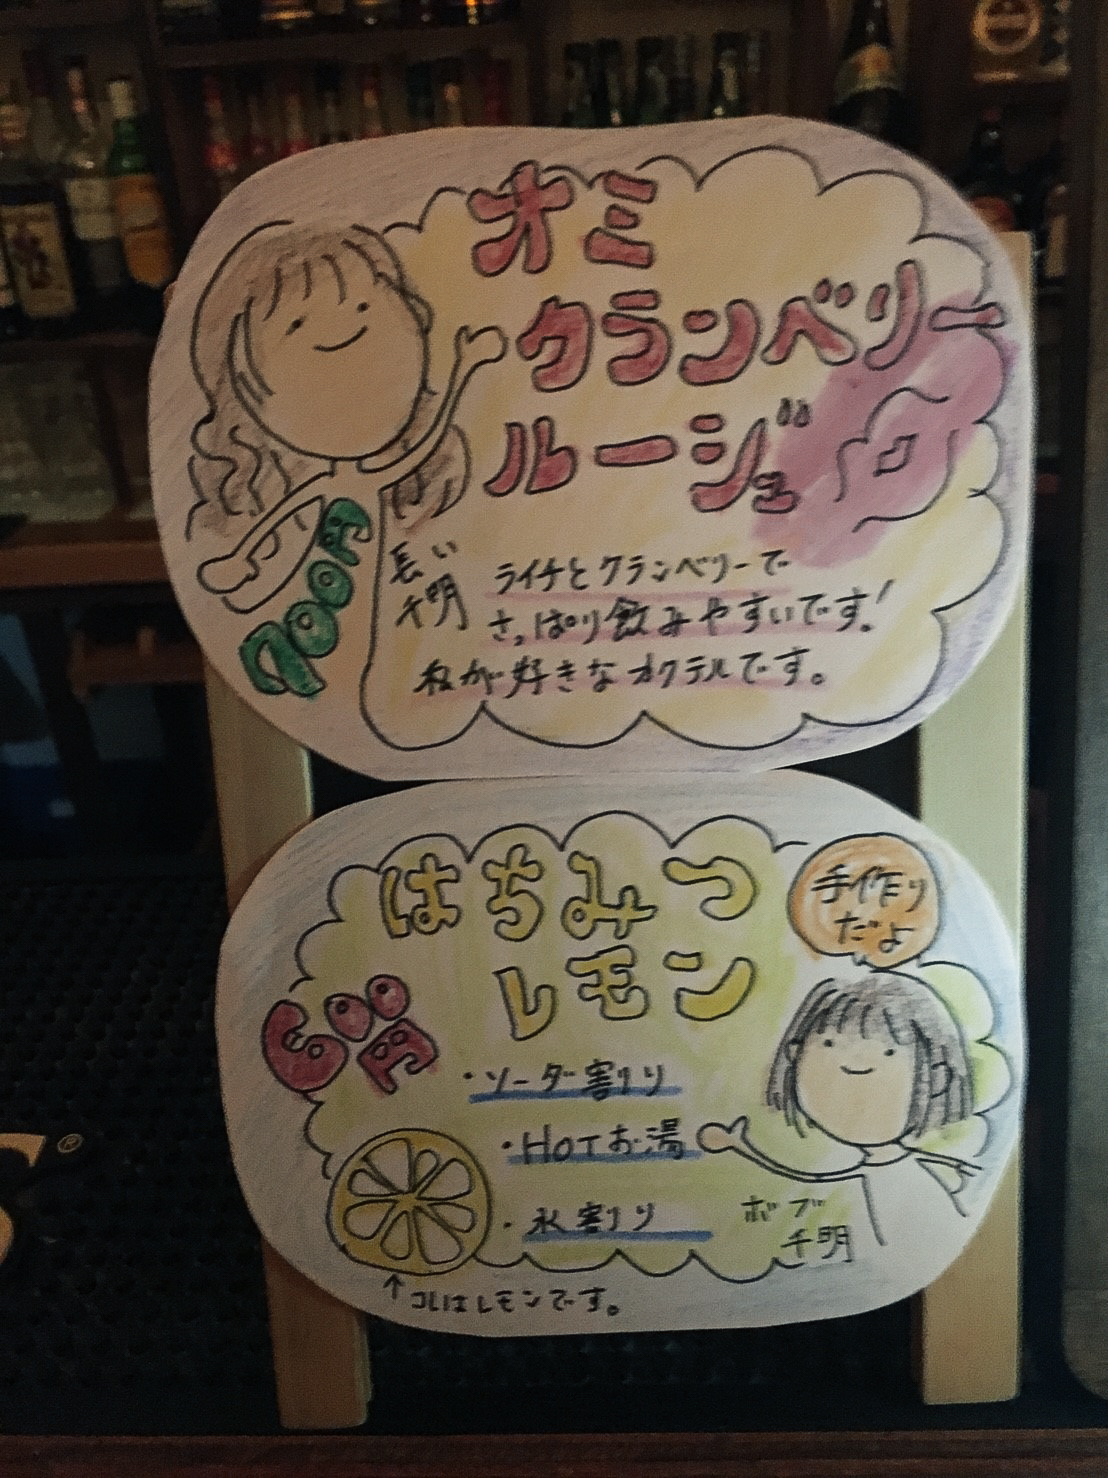 オミ
クランベリー
ルージュ
700円
長い
千明
ライチとクランベリーで
さっぱり飲みやすいです!
私が好きなカクテルです。
はちみつ
レモン
手作り
だよ
600
円
・ソーダ割り
・HOTお湯
・水割り
ボブ
千明
↑コレはレモンです。
®